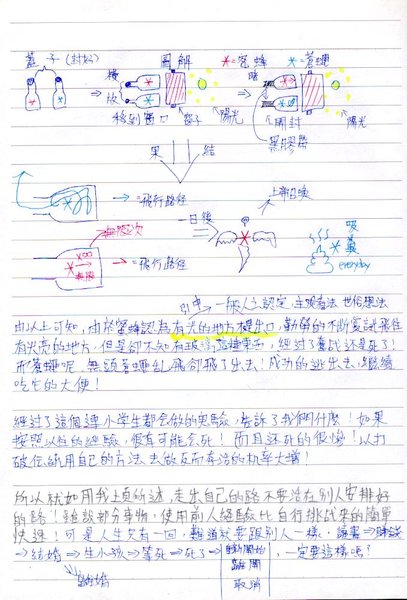 蓋子(封好)
圖解
*=蜜蜂 *=蒼蠅
橫放
移到窗口
窗子
陽光
暗
開封
黑膠帶
陽光
果 結
=飛行路徑
無限次
=飛行路徑
一日後
上帝召喚
吸糞
everyday
引申 一般人之認定,主觀看法 世俗想法
由以上可知,由於蜜蜂認為有光的地方才是出口,勤勞的不斷嘗試飛往
有光亮的地方,但是卻不知有玻璃這種東西,經過了嘗試還是死了!
而蒼蠅呢 無頭蒼蠅亂飛卻飛了出去!成功的逃出去,繼續
吃它的大便!
經過了這個連小學生都會做的實驗,告訴了我們什麼!如果
按照以往的經驗,很有可能會死!而且還死的很慘!以打
破傳統用自己的方法去做反而存活的机率大增!
所以就如用我上頁所述,走出自己的路不要活在別人安排好
的路!雖說部分事物,使用前人經驗比自行挑战來的簡單
快速!可是人生只有一回,難道就要跟別人一樣,讀書→賺錢
→結婚→生小孩→等死→死了→ 重新開始 離開 取消 ,一定要這樣嗎?
離婚